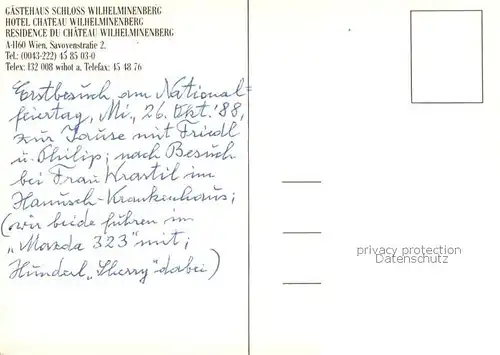 GÄSTEHAUS SCHLOSS WILHELMINENBERG
HOTEL CHATEAU WILHELMINENBERG
RESIDENCE DU CHÂTEAU WILHELMINENBERG
A-1160 Wien, Savoyenstraße 2.
Tel.: (0043-222) 45 85 03-0
Telex: 132 008 wihot a, Telefax: 45 48 76
Erstbesuch am National=
feiertag, Mi., 26. Okt.'88,
zur Jause mit Friedl
u. Philip; nach Besuch
bei Frau Krastil im
Hanusch-Krankenhaus;
(wir beide fuhren im
„Mazda 323" mit;
Hunderl „Sherry" dabei)
privacy protection
Datenschutz